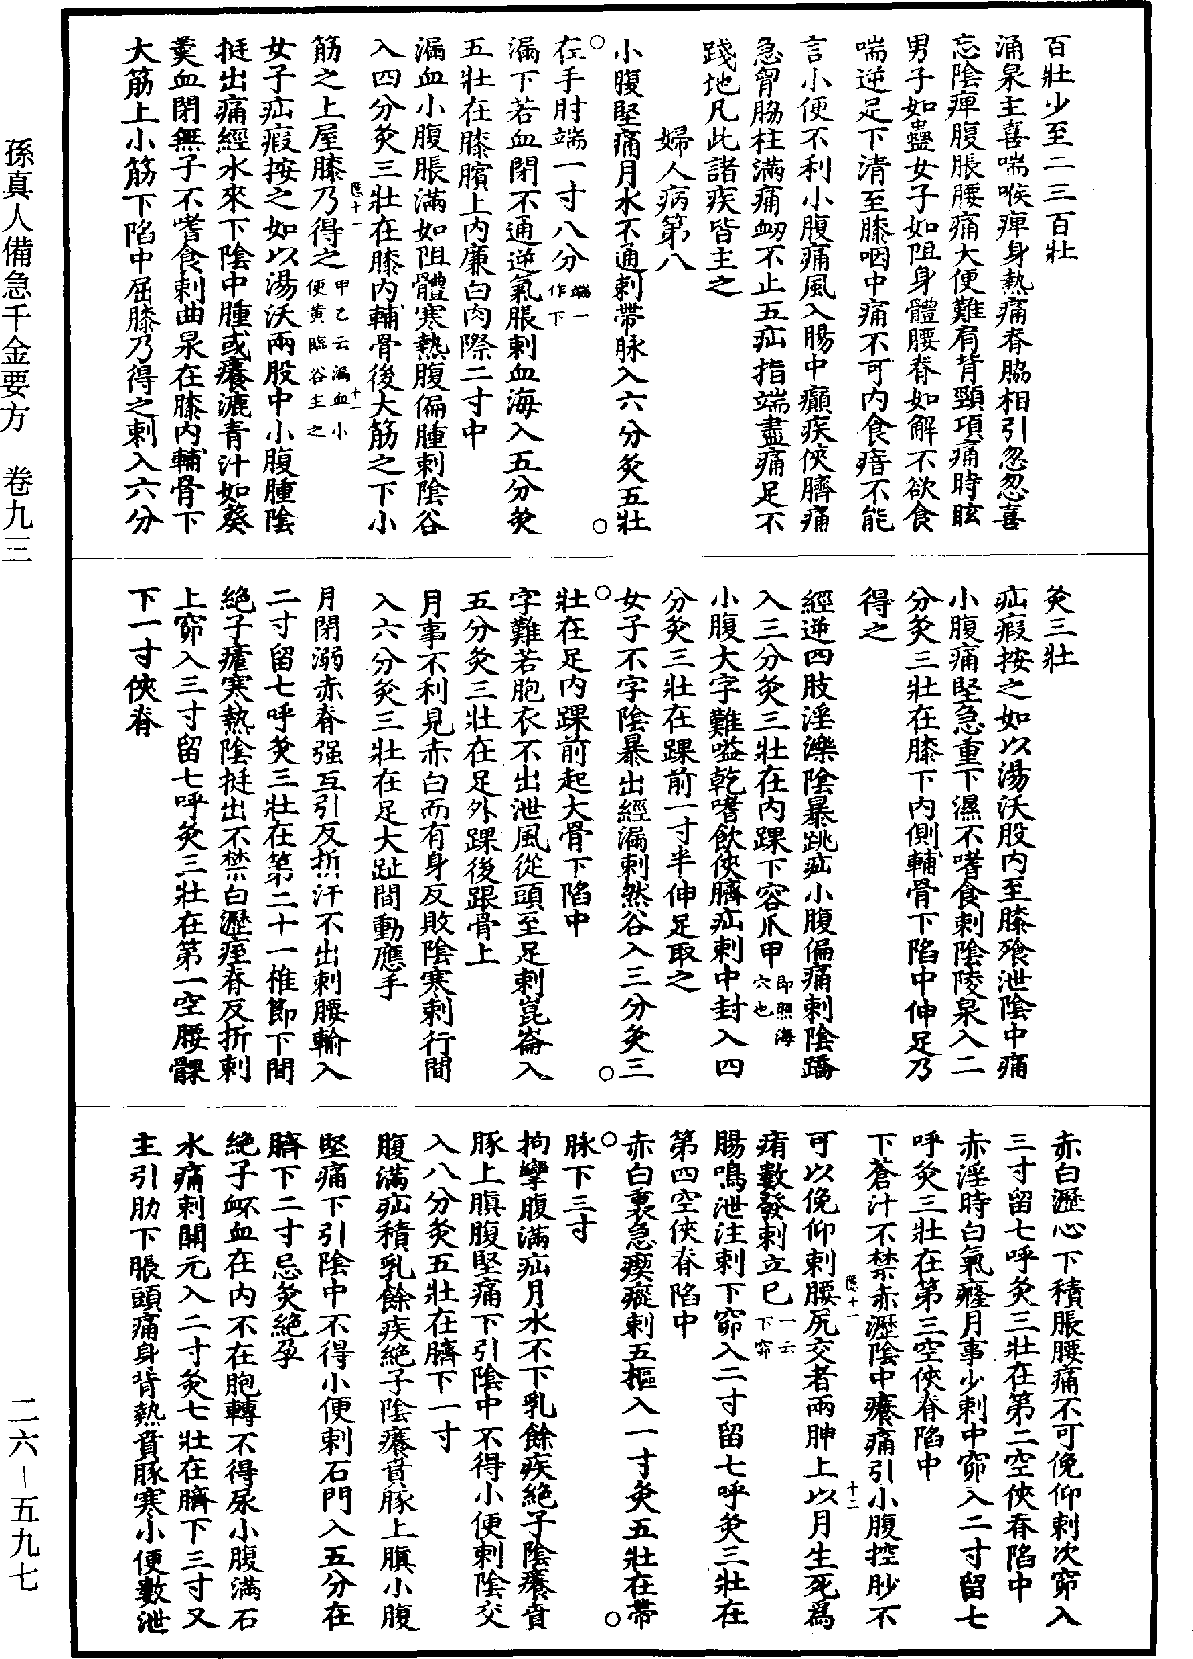 百壯少至二三百壯
涌泉主喜喘喉痺身熱痛脊脇相引忽忽喜
忘陰痺腹脹腰痛大便難肩背頸項痛時眩
男子如蠱女子如阻身體腰脊如解不欲食
喘逆足下清至膝咽中痛不可內食瘖不能
言小便不利小腹痛風入腸中癲疾俠臍痛
急胷脇柱滿痛衂不止五疝指端盡痛足不
踐地凡此諸疾皆主之
婦人病第八
小腹堅痛月水不通刺帶脉入六分灸五壯
在手肘端一寸八分端一作下
漏下若血閉不通逆氣脹刺血海入五分灸
五壯在膝臏上內廉白肉際二寸中
漏血小腹脹滿如阻體寒熱腹偏腫刺陰谷
入四分灸三壯在膝內輔骨後大筋之下小
筋之上屋膝乃得之甲乙云漏血小便黃陰谷主之
女子疝瘕按之如以湯沃兩股中小腹腫陰
挺出痛經水來下陰中腫或癢漉青汁如葵
羹血閉無子不嗜食刺曲泉在膝內輔骨下
大筋上小筋下陷中屈膝乃得之刺入六分
灸三壯
疝瘕按之如以湯沃股內至膝飱泄陰中痛
小腹痛堅急重下濕不嗜食刺陰陵泉入二
分灸三壯在膝下內側輔骨下陷中伸足乃
得之
經逆四肢淫濼陰暴跳疝小腹偏痛刺陰蹻
入三分灸三壯在內踝下容爪甲即照海穴也
小腹大字難嗌乾嗜飲俠臍疝刺中封入四
分灸三壯在踝前一寸半伸足取之
女子不字陰暴出經漏刺然谷入三分灸三
壯在足內踝前起大骨下陷中
字難若胞衣不出泄風從頭至足刺崑崙入
五分灸三壯在足外踝後跟骨上
月事不利見赤白而有身反敗陰寒刺行間
入六分灸三壯在足大趾間動應手
月閉溺赤脊强互引反折汗不出刺腰輸入
二寸留七呼灸三壯在第二十一椎節下間
絶子瘧寒熱陰挺出不禁白瀝痓脊反折刺
上窌入三寸留七呼灸三壯在第一空腰髁
下一寸俠脊
赤白瀝心下積脹腰痛不可俛仰刺次窌入
三寸留七呼灸三壯在第二空俠脊陷中
赤淫時白氣癃月事少刺中窌入二寸留七
呼灸三壯在第三空俠脊陷中
下蒼汁不禁赤瀝陰中癢痛引小腹控䏚不
可以俛仰刺腰尻交者兩胂上以月生死爲
痏數發刺立已一云下窌
腸鳴泄注刺下窌入二寸留七呼灸三壯在
第四空俠脊陷中
赤白裏急瘈瘲刺五樞入一寸灸五壯在帶
脉下三寸
拘攣腹滿疝月水不下乳餘疾絶子陰癢賁
豚上䐜腹堅痛下引陰中不得小便刺陰交
入八分灸五壯在臍下一寸
腹滿疝積乳餘疾絶子陰癢賁豚上䐜小腹
堅痛下引陰中不得小便刺石門入五分在
臍下二寸忌灸絶孕
絶子衃血在內不在胞轉不得尿小腹滿石
水痛刺關元入二寸灸七壯在臍下三寸又
主引肋下脹頭痛身背熱賁豚寒小便數泄
孫真人備急千金要方　卷九三
二六—五九七